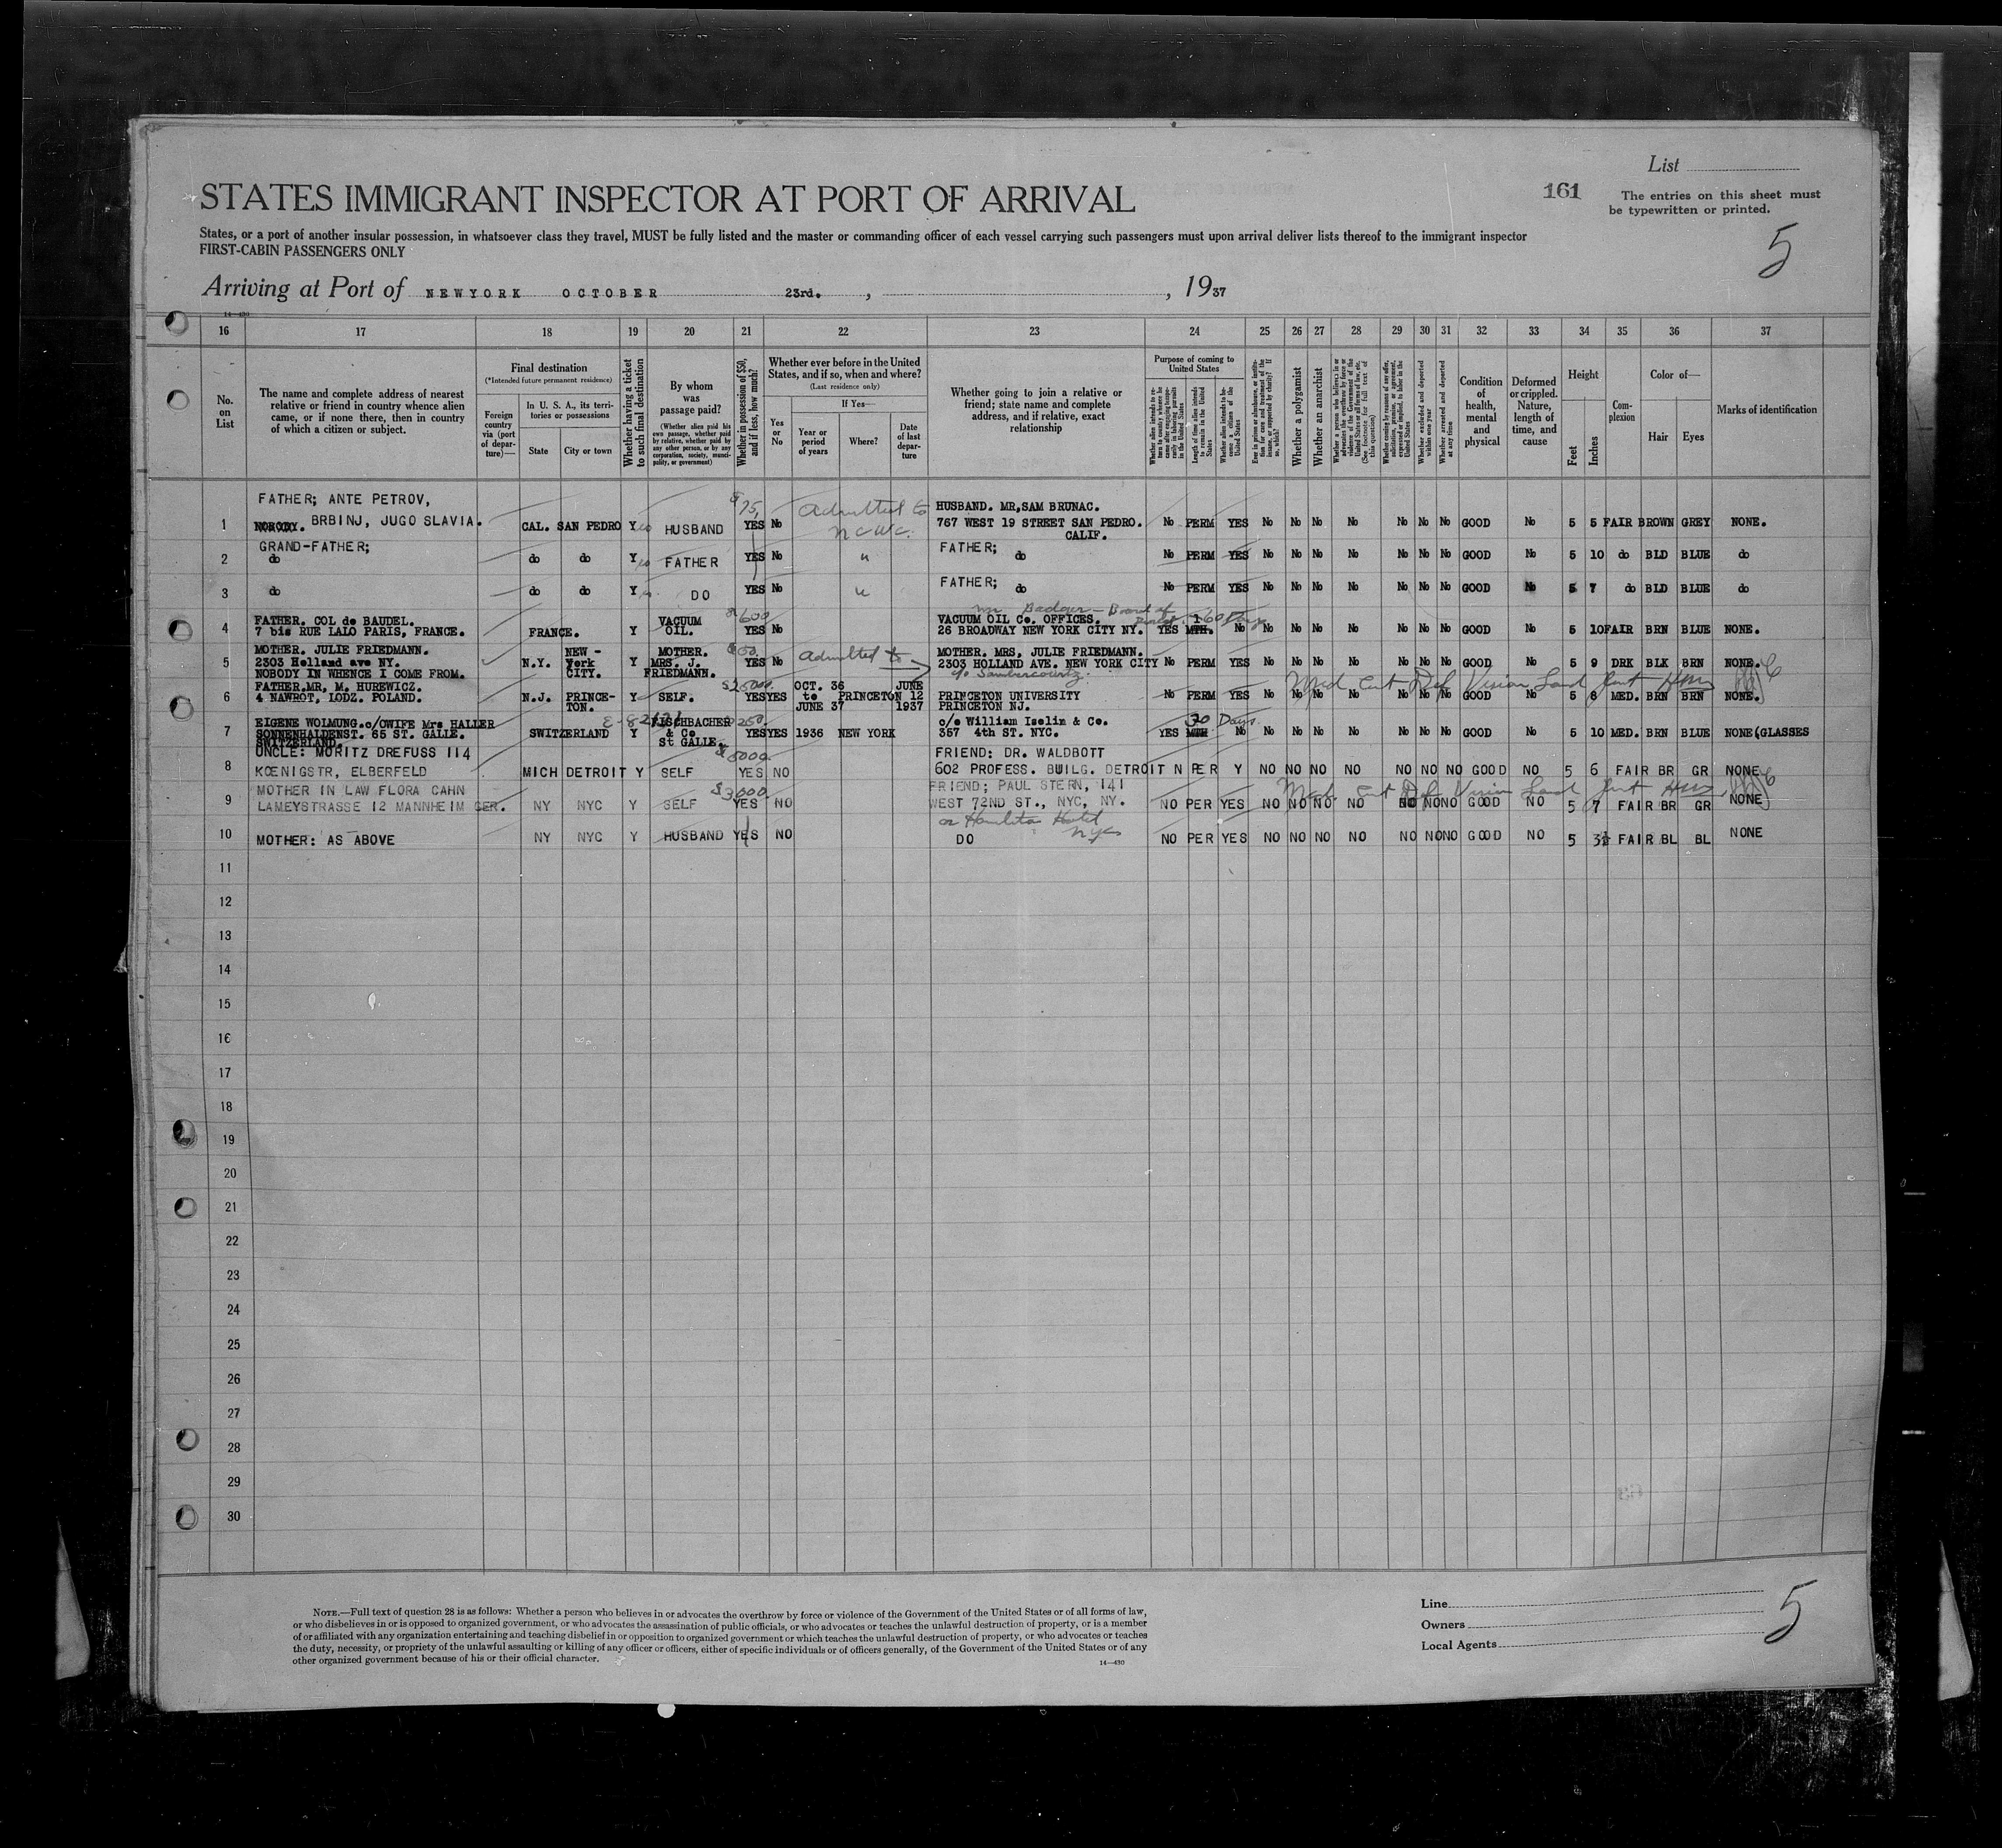 List
161
The entries on this sheet must
be typewritten or printed.
STATES IMMIGRANT INSPECTOR AT PORT OF ARRIVAL
5
States, or a port of another insular possession, in whatsoever class they travel, MUST be fully listed and the master or commanding officer of each vessel carrying such passengers must upon arrival deliver lists thereof to the immigrant inspector
FIRST-CABIN PASSENGERS ONLY
Arriving at Port of NEWYORK OCTOBER 23rd. , , 1937
14—430
16 17 18 19 20 21 22 23 24 25 26 27 28 29 30 31 32 33 34 35 36 37
No. on List
The name and complete address of nearest relative or friend in country whence alien came, or if none there, then in country of which a citizen or subject.
Final destination
(*Intended future permanent residence)
Foreign country via (port of departure)—
In U. S. A., its territories or possessions
State
City or town
Whether having a ticket to such final destination
By whom was passage paid?
(Whether alien paid his own passage, whether paid by relative, whether paid by any other person, or by any corporation, society, municipality, or government)
Whether in possession of $50, and if less, how much?
Whether ever before in the United States, and if so, when and where?
(Last residence only)
Yes or No
If Yes—
Year or period of years
Where?
Date of last departure
Whether going to join a relative or friend; state name and complete address, and if relative, exact relationship
Purpose of coming to United States
Length of time alien intends to remain in the United States
Whether alien intends to become a citizen of the United States
Whether a polygamist
Whether an anarchist
Whether excluded and deported within one year
Whether arrested and deported at any time
Condition of health, mental and physical
Deformed or crippled. Nature, length of time, and cause
Height
Feet
Inches
Complexion
Color of—
Hair
Eyes
Marks of identification
1 FATHER; ANTE PETROV, NOBODY. BRBINJ, JUGO SLAVIA. CAL. SAN PEDRO Y HUSBAND $75, YES No Admitted to NCWC. HUSBAND. MR,SAM BRUNAC. 767 WEST 19 STREET SAN PEDRO. CALIF. No PERM YES No No No No No No No GOOD No 5 5 FAIR BROWN GREY NONE.
2 GRAND-FATHER; do do do Y FATHER YES No " FATHER; do No PERM YES No No No No No No No GOOD No 5 10 do BLD BLUE do
3 do do do Y DO YES No " FATHER; do No PERM YES No No No No No No No GOOD No 5 7 do BLD BLUE do
4 FATHER. COL de BAUDEL. 7 bis RUE LALO PARIS, FRANCE. FRANCE. Y VACUUM OIL. $600 YES No VACUUM OIL Co. OFFICES. 26 BROADWAY NEW YORK CITY NY. YES 1 MTH. 60 Days No No No No No No No No GOOD No 5 10 FAIR BRN BLUE NONE.
5 MOTHER. JULIE FRIEDMANN. 2303 Holland ave NY. NOBODY IN WHENCE I COME FROM. N.Y. NEW-York CITY. Y MOTHER. MRS. J. FRIEDMANN. $50. YES No Admitted to MOTHER. MRS, JULIE FRIEDMANN. 2303 HOLLAND AVE. NEW YORK CITY No PERM YES No No No No No No No GOOD No 5 9 DRK BLK BRN NONE.
6 FATHER.MR, M. HUREWICZ. 4 NAWROT, LODZ. POLAND. N.J. PRINCE-TON. Y SELF. $25000. YES YES OCT. 36 to JUNE 37 PRINCETON JUNE 12 1937 PRINCETON UNIVERSITY PRINCETON NJ. No PERM YES No No No No No No No GOOD No 5 8 MED. BRN BRN NONE.
7 EIGENE WOLMUNG.c/oWIFE Mrs HALLER SONNENHALDENST. 65 ST. GALLE. SWITZERLAND. SWITZERLAND Y FISCHBACHER & Co St GALLE. $250. YES YES 1936 NEW YORK c/o William Iselin & Co. 357 4th ST. NYC. YES MTH 30 Days No No No No No No No No GOOD No 5 10 MED. BRN BLUE NONE(GLASSES
8 UNCLE: MORITZ DREFUSS 114 KŒNIGSTR, ELBERFELD MICH DETROIT Y SELF $5000 YES NO FRIEND: DR. WALDBOTT 602 PROFESS. BUILG. DETROIT N PER Y NO NO NO NO NO NO NO GOOD NO 5 6 FAIR BR GR NONE
9 MOTHER IN LAW FLORA CAHN LAMEYSTRASSE 12 MANNHEIM GER. NY NYC Y SELF $3000. YES NO FRIEND; PAUL STERN, 141 WEST 72ND ST., NYC, NY. NO PER YES NO NO NO NO NO NO NO GOOD NO 5 7 FAIR BR GR NONE
or Hamilton Hotel NYC
10 MOTHER: AS ABOVE NY NYC Y HUSBAND YES NO DO NO PER YES NO NO NO NO NO NO NO GOOD NO 5 3½ FAIR BL BL NONE
11
12
13
14
15
16
17
18
19
20
21
22
23
24
25
26
27
28
29
30
NOTE.—Full text of question 28 is as follows: Whether a person who believes in or advocates the overthrow by force or violence of the Government of the United States or of all forms of law,
or who disbelieves in or is opposed to organized government, or who advocates the assassination of public officials, or who advocates or teaches the unlawful destruction of property, or is a member
of or affiliated with any organization entertaining and teaching disbelief in or opposition to organized government or which teaches the unlawful destruction of property, or who advocates or teaches
the duty, necessity, or propriety of the unlawful assaulting or killing of any officer or officers, either of specific individuals or of officers generally, of the Government of the United States or of any
other organized government because of his or their official character.
14—430
Line
Owners
Local Agents
5